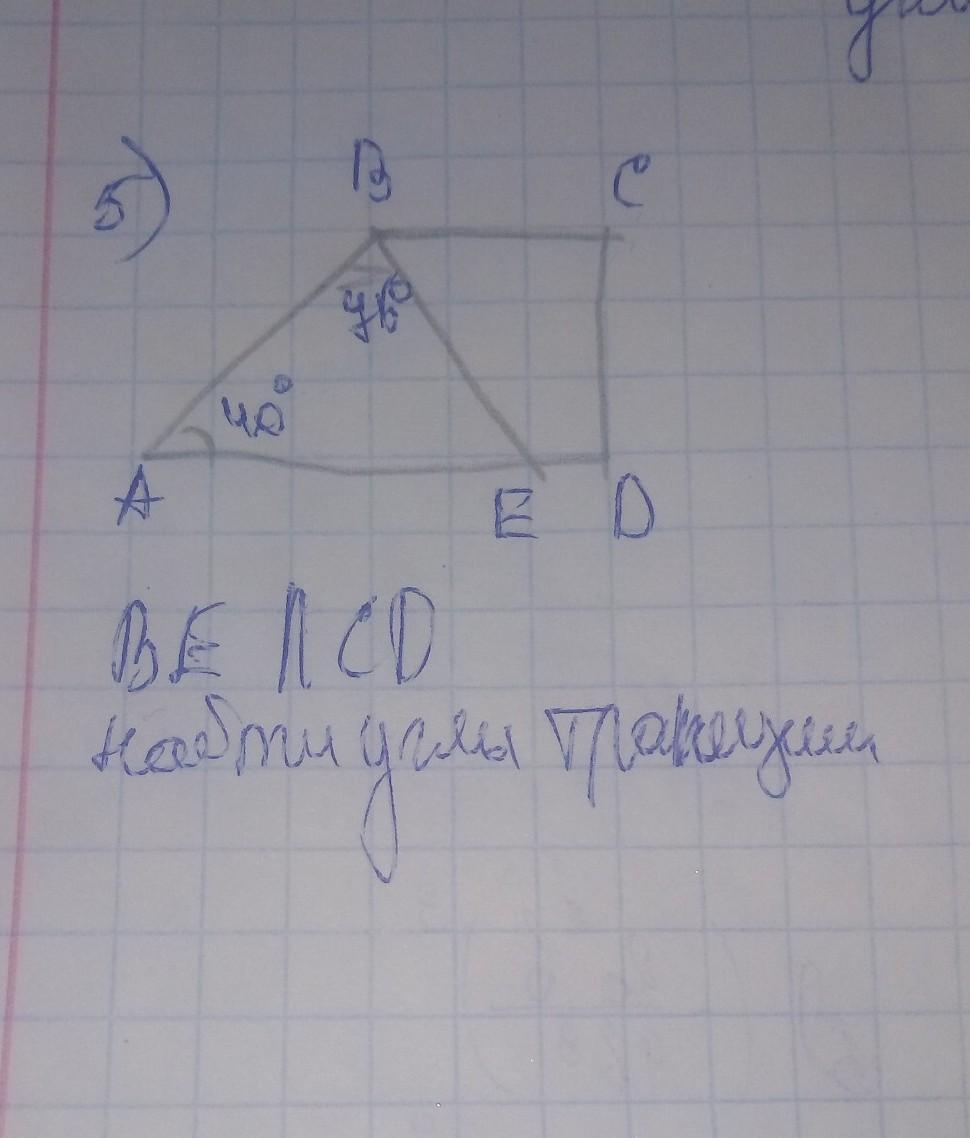 5)
B C
75°
40°
A E D
BE || CD
Найти углы трапеции